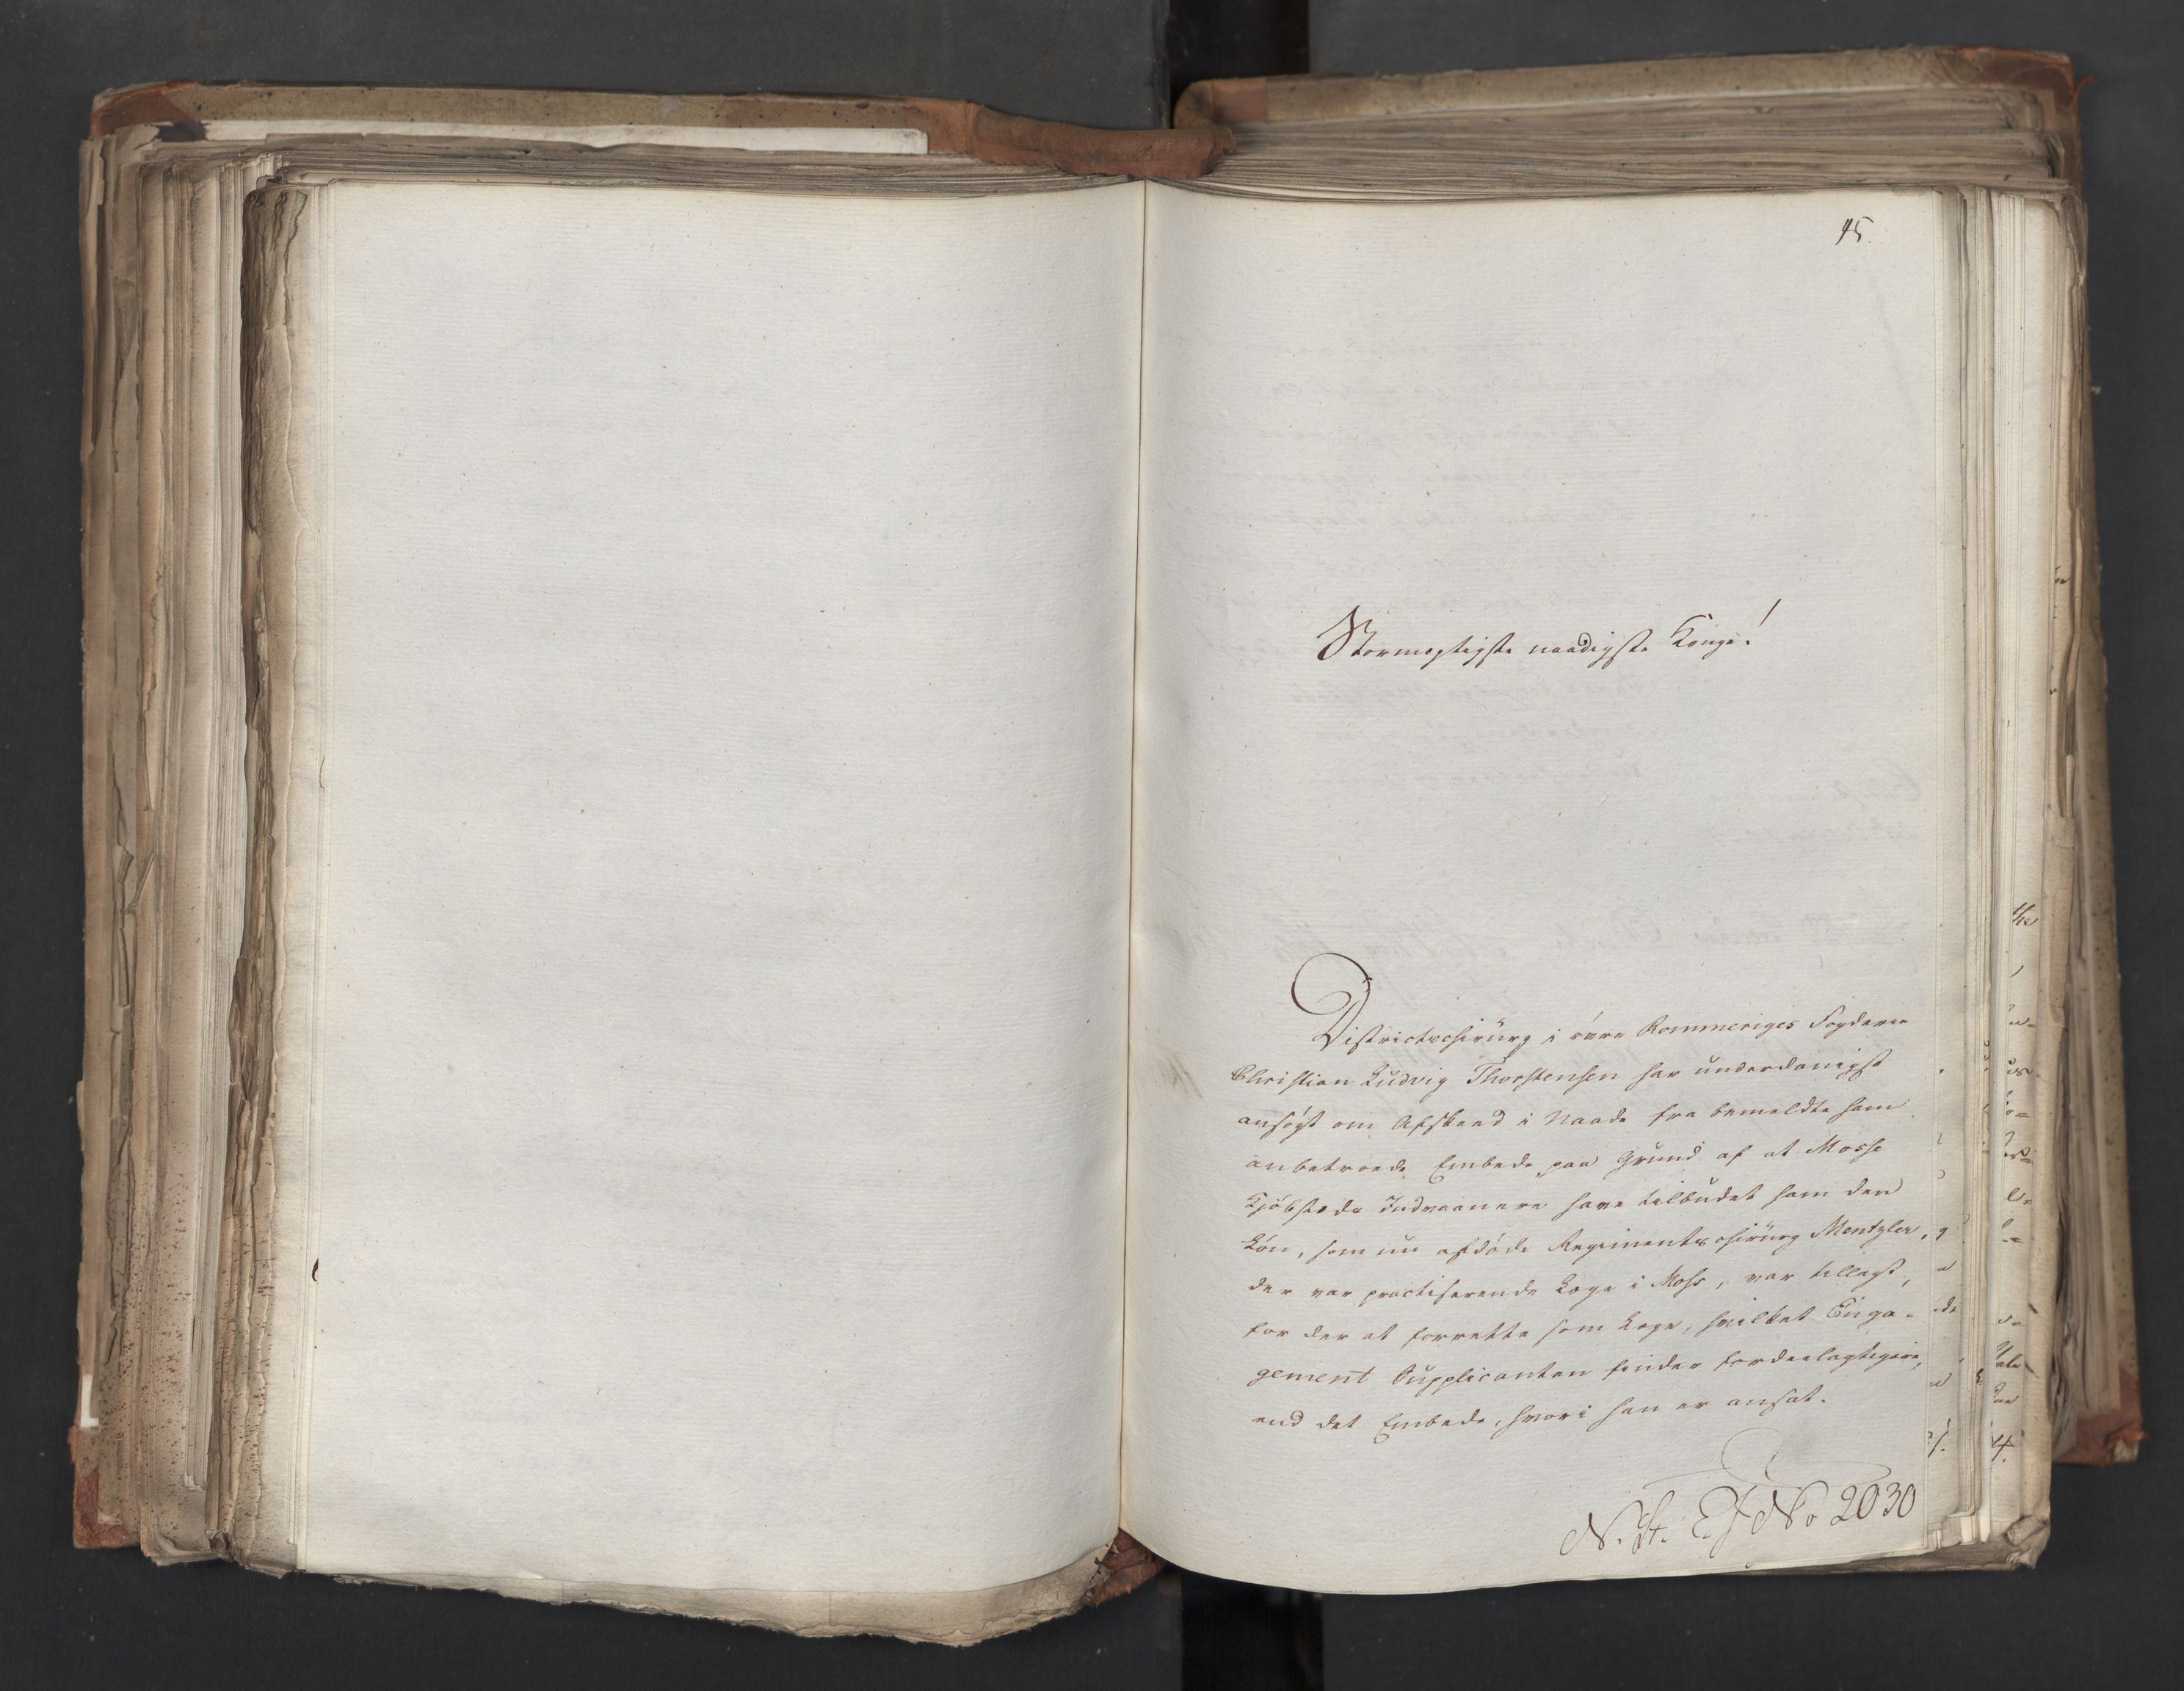 45.
Stormægtigste naadigste Konge!
Districtschirurg i øvre Rommeriges Fogderie
Christian Ludvig Thorstensen har underdanigst
ansøgt om Afskeed i Naade fra bemeldte ham
anbetroede Embede paa Grund af at Mosse
Kjøbstæds Indvaanere have tilbudet ham den
Løn, som nu afdøde Regimentschirurg Mentzler,
der var practiserende Læge i Moss, var tillagt,
for der at forrette som Læge, hvilket Enga-
gement Supplicanten finder fordeelagtigere,
end det Embede, hvori han er ansat.
N. St. E. J No 2030